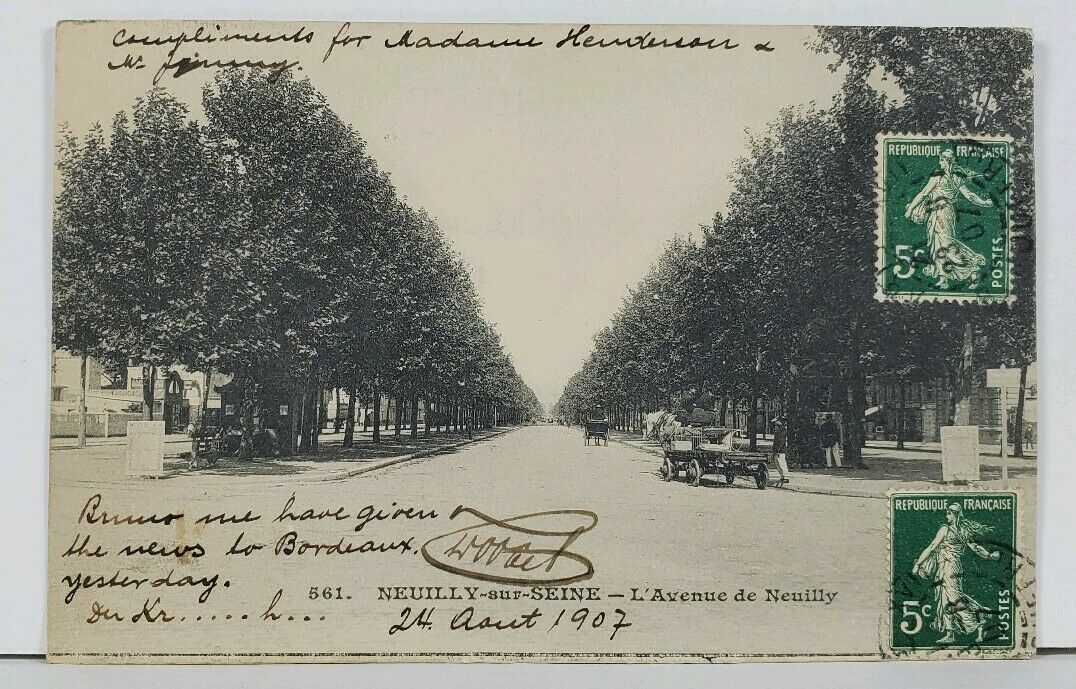 Compliments for Madame Henderson &
Mr
REPUBLIQUE FRANÇAISE
5c
POSTES
07
Bruno me have given
the news to Bordeaux.
yesterday.
561. NEUILLY-sur-SEINE — L'Avenue de Neuilly
Du Kr.....h...
24 Aout 1907
REPUBLIQUE FRANÇAISE
5c
POSTES